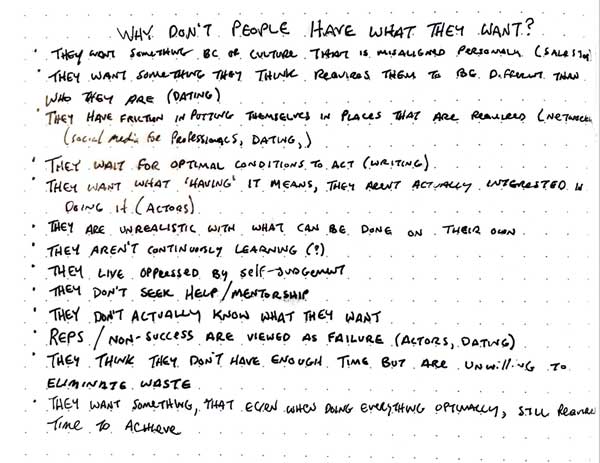 WHY DON'T PEOPLE HAVE WHAT THEY WANT?
• THEY WANT SOMETHING BC OF CULTURE THAT IS MISALIGNED PERSONALLY
• THEY WANT SOMETHING THEY THINK REQUIRES THEM TO BE DIFFERENT THAN
WHO THEY ARE (DATING)
• THEY HAVE FRICTION IN PUTTING THEMSELVES IN PLACES THAT ARE REQUIRED
(SOCIAL MEDIA FOR PROFESSIONALS, DATING,)
• THEY WAIT FOR OPTIMAL CONDITIONS TO ACT (WRITING)
• THEY WANT WHAT 'HAVING' IT MEANS, THEY AREN'T ACTUALLY INTERESTED IN
DOING IT (ACTORS)
• THEY ARE UNREALISTIC WITH WHAT CAN BE DONE ON THEIR OWN
• THEY AREN'T CONTINUOUSLY LEARNING (?)
• THEY LIVE OPPRESSED BY SELF-JUDGEMENT
• THEY DON'T SEEK HELP/MENTORSHIP
• THEY DON'T ACTUALLY KNOW WHAT THEY WANT
• REPS / NON-SUCCESS ARE VIEWED AS FAILURE (ACTORS, DATING)
• THEY THINK THEY DON'T HAVE ENOUGH TIME BUT ARE UNWILLING TO
ELIMINATE WASTE
• THEY WANT SOMETHING, THAT EVEN WHEN DOING EVERYTHING OPTIMALLY, STILL
TIME TO ACHIEVE